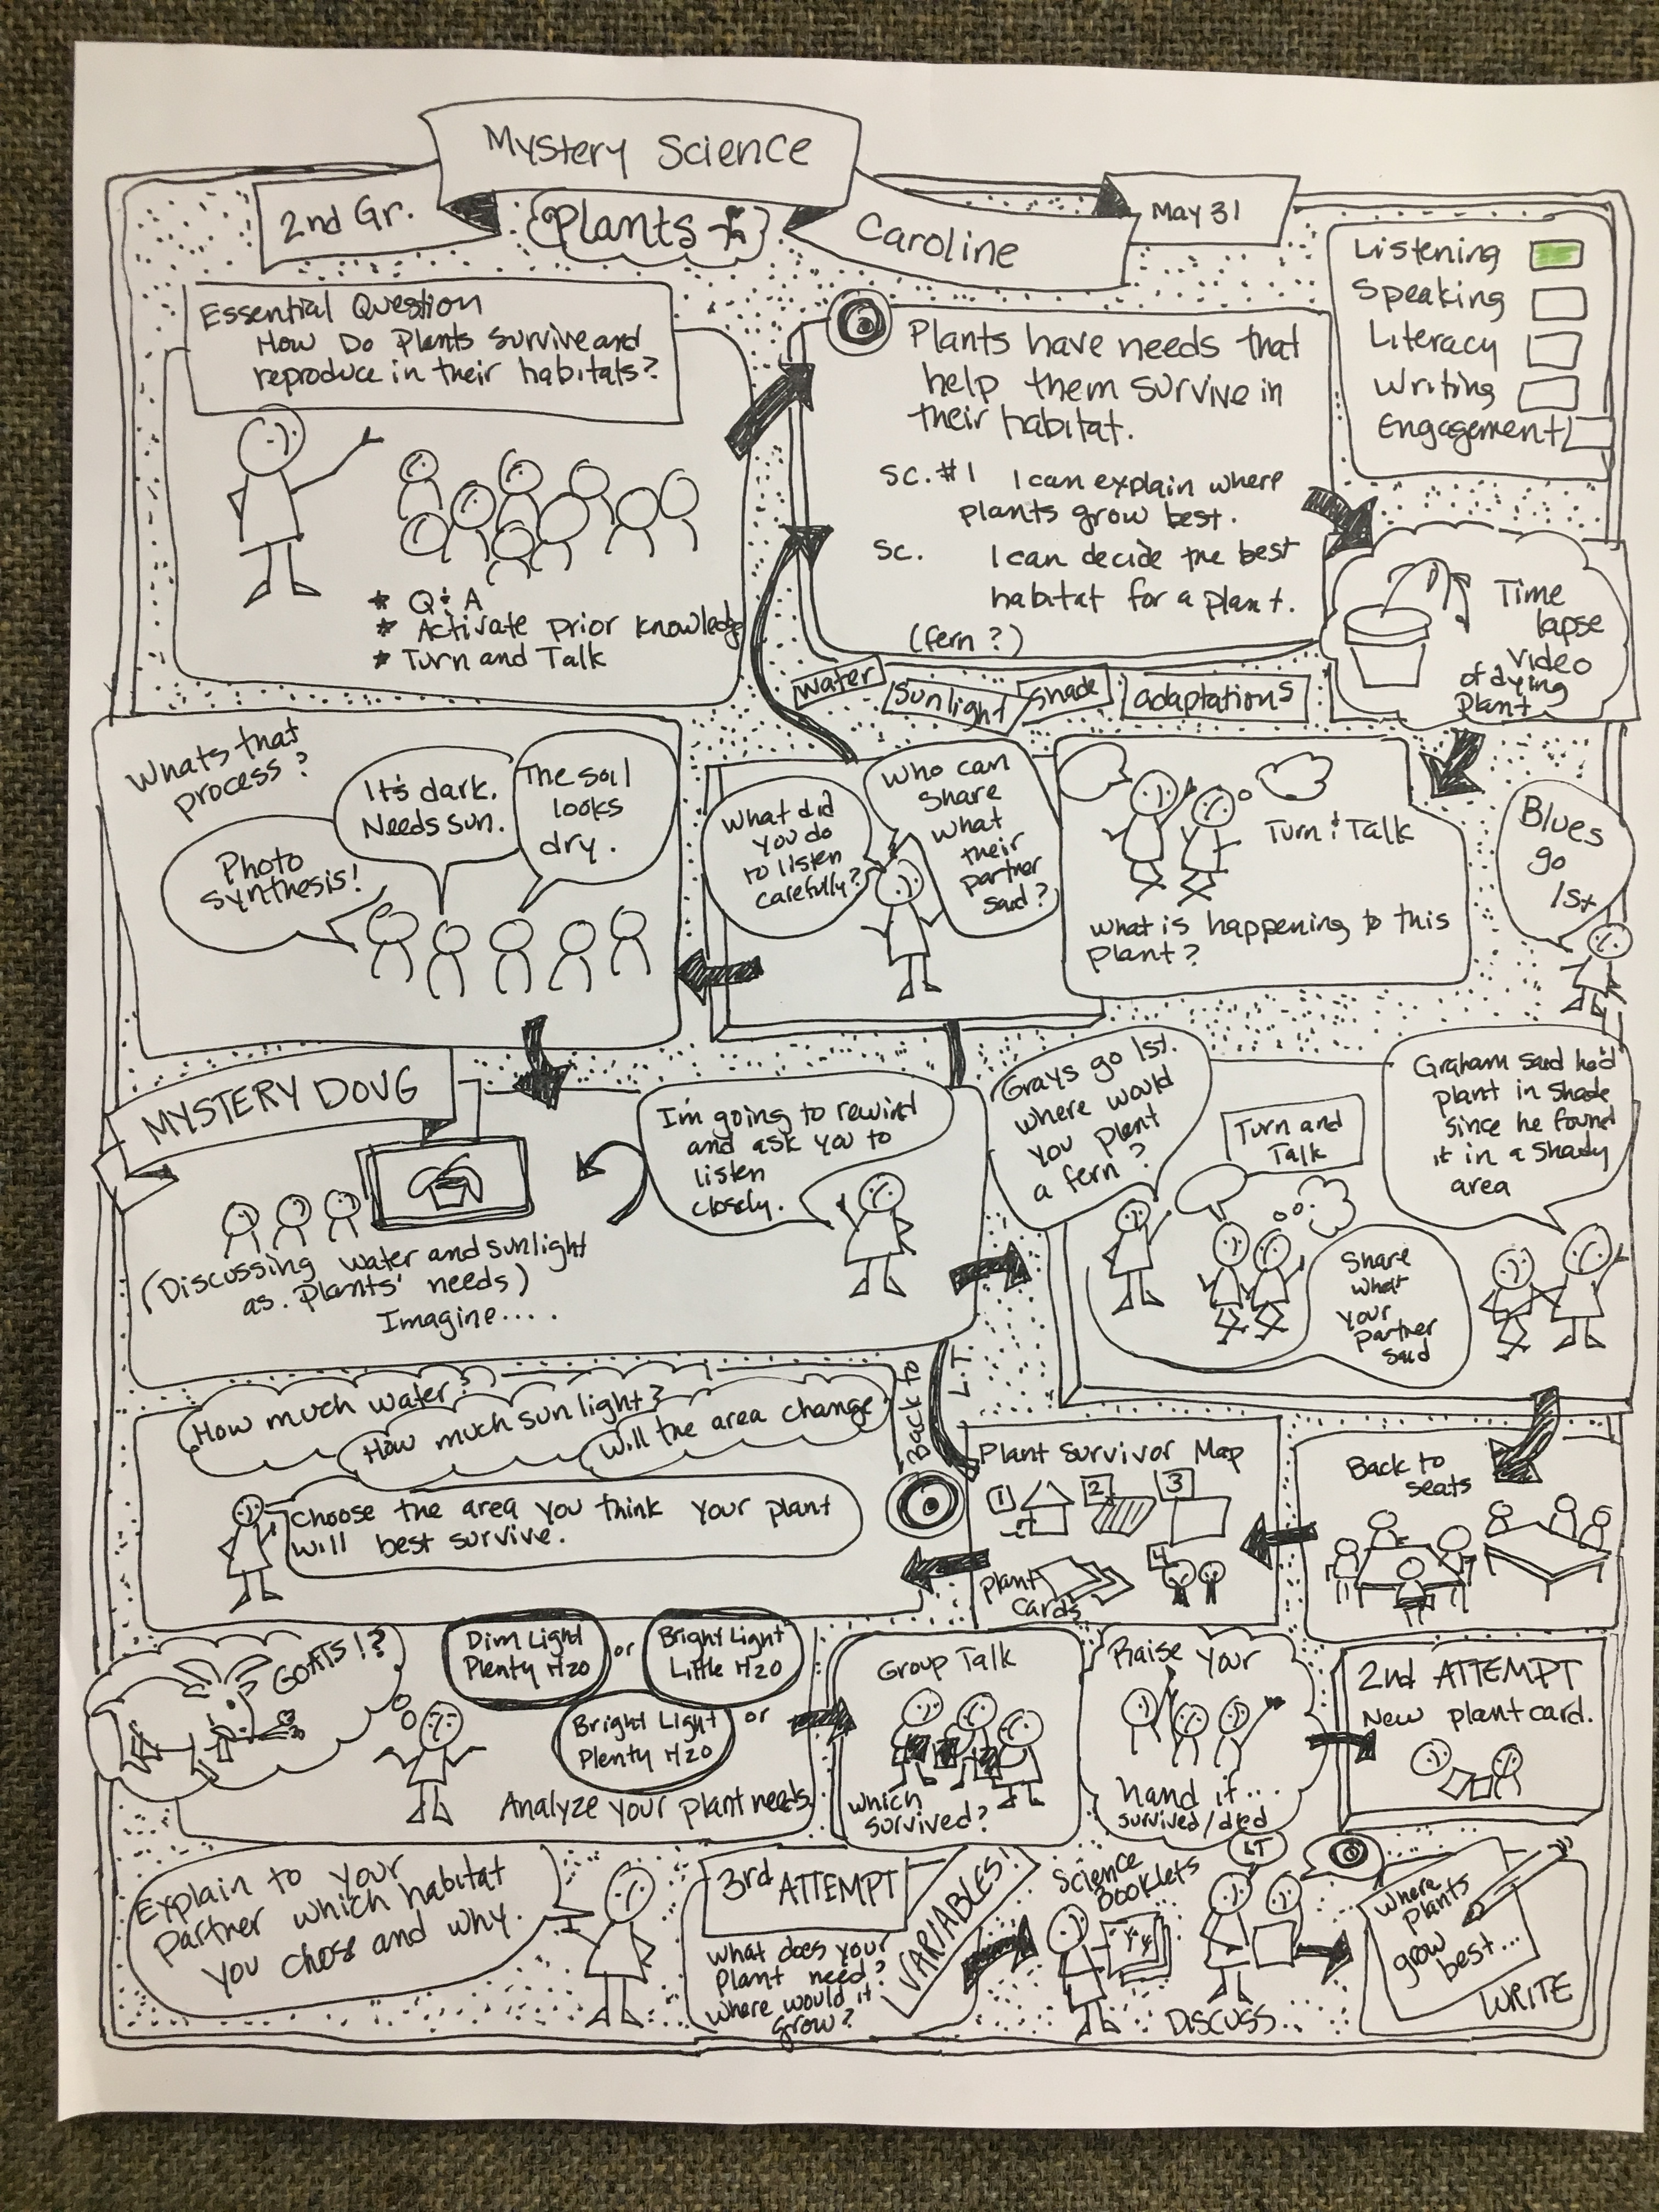 Mystery Science
2nd Gr.
Plants
Caroline
May 31
Listening
Speaking
Literacy
Writing
Engagement
Essential Question
How Do Plants survive and
reproduce in their habitats?
* Q & A
* Activate prior knowledge
* Turn and Talk
Plants have needs that
help them survive in
their habitat.
SC. #1 I can explain where
plants grow best.
SC. I can decide the best
habitat for a plant.
(fern?)
Time
lapse
video
of dying
plant
water
Sunlight
shade
adaptations
Turn & Talk
What is happening to this
plant?
Blues
go
1st
What did
you do
to listen
carefully?
Who can
share
what
their
partner
said?
Whats that
process?
Photo
synthesis!
It's dark.
Needs sun.
The soil
looks
dry.
MYSTERY DOUG
(Discussing water and sunlight
as plants' needs)
Imagine....
I'm going to rewind
and ask you to
listen
closely.
Grays go 1st.
where would
you plant
a fern?
Turn and
Talk
Share
what
your
partner
said
Graham said he'd
plant in shade
since he found
it in a shady
area
Back to
seats
Plant Survivor Map
1
2
3
4
plant
cards
Back to
L.T.
How much water?
How much sunlight?
Will the area change
Choose the area you think your plant
will best survive.
GOATS!?
Dim Light
Plenty H2O
or
Bright Light
Little H2O
or
Bright Light
Plenty H2O
Analyze your plant needs
Group Talk
which
survived?
Raise your
hand if...
survived/died
2nd ATTEMPT
New plant card.
Explain to your
partner which habitat
you chose and why.
3rd ATTEMPT
What does your
plant need?
where would it
grow?
VARIABLES!
Science
Booklets
LT
DISCUSS
Where
plants
grow
best...
WRITE